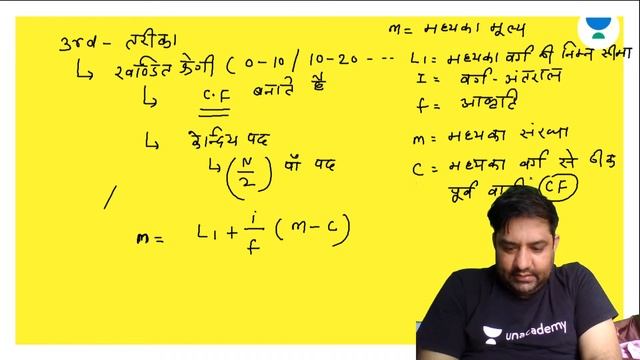 3rd - तरीका
↳ खण्डित श्रेणी ( 0-10 / 10-20 ---
↳ C.F बनाते है
↳ केन्द्रिय पद
↳ (N/2) वाँ पद
m = L1 + i/f (m - c)
m = मध्यका मूल्य
L1 = मध्यका वर्ग की निम्न सीमा
I = वर्ग - अंतराल
f = आवृति
m = मध्यका संख्या
C = मध्यका वर्ग से ठीक
पूर्व वाली CF
unacademy